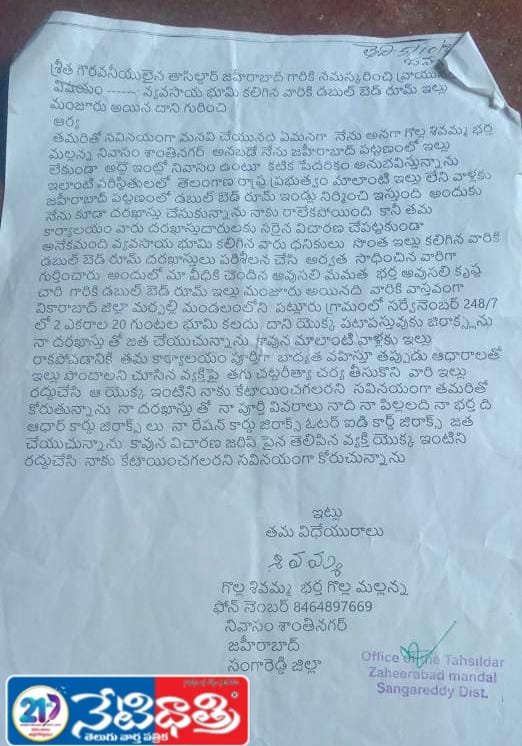 తేది-5/11/
శ్రీత గౌరవనీయులైన తాసిల్దార్ జహీరాబాద్ గారికి నమస్కరించి వ్రాయునది
విషయం ------- వ్యవసాయ భూమి కలిగిన వారికి డబుల్ బెడ్ రూమ్ ఇల్లు
మంజూరు అయిన దాని గురించి
ఆర్య
తమరితో సవినయంగా మనవి చేయునది ఏమనగా నేను అనగా గొల్ల శివమ్మ భర్త
మల్లన్న నివాసం శాంతినగర్ అనబడే నేను జహీరాబాద్ పట్టణంలో ఇల్లు
లేకుండా అద్దె ఇంట్లో నివాసం ఉంటూ కటిక పేదరికం అనుభవిస్తున్నాను
ఇలాంటి పరిస్థితులలో తెలంగాణ రాష్ట్ర ప్రభుత్వం మాలాంటి ఇల్లు లేని వాళ్లకు
జహీరాబాద్ పట్టణంలో డబుల్ బెడ్ రూమ్ ఇండ్లు నిర్మించి ఇస్తుంది అందుకు
నేను కూడా దరఖాస్తు చేసుకున్నాను నాకు రాలేకపోయింది కానీ తమ
కార్యాలయం వారు దరఖాస్తుదారులకు సరైన విచారణ చేపట్టకుండా
అనేకమంది వ్యవసాయ భూమి కలిగిన వారు ధనికులు సొంత ఇల్లు కలిగిన వారికి
డబుల్ బెడ్ రూమ్ దరఖాస్తులు పరిశీలన చేసి అర్హత సాధించిన వారిగా
గుర్తించారు అందులో మా వీధికి చెందిన అవుసలి మమత భర్త అవుసలి కృష్ణ
చారి గారికి డబుల్ బెడ్ రూమ్ ఇల్లు మంజూరు అయినది వారికి వాస్తవంగా
వికారాబాద్ జిల్లా మర్పల్లి మండలంలోని పట్లూరు గ్రామంలో సర్వేనెంబర్ 248/7
లో 2 ఎకరాల 20 గుంటల భూమి కలదు దాని యొక్క పటాపస్తువుకు జిరాక్స్ ను
నా దరఖాస్తు తో జత చేయుచున్నాను కావున మాలాంటి వాళ్లకు ఇల్లు
రాకపోవడానికి తమ కార్యాలయం పూర్తిగా బాధ్యత వహిస్తూ తప్పుడు ఆధారాలతో
ఇల్లు పొందాలని చూసిన వ్యక్తిపై తగు చట్టరీత్యా చర్య తీసుకొని వారి ఇల్లు
రద్దుచేసి ఆ యొక్క ఇంటిని నాకు కేటాయించగలరని సవినయంగా తమరితో
కోరుతున్నాను నా దరఖాస్తు తో నా పూర్తి వివరాలు నాది నా పిల్లలది నా భర్త ది
ఆధార్ కార్డు జిరాక్స్ లు నా రేషన్ కార్డు జిరాక్స్ ఓటర్ ఐడి కార్డ్ జిరాక్స్ జత
చేయుచున్నాను కావున విచారణ జరిపి పైన తెలిపిన వ్యక్తి యొక్క ఇంటిని
రద్దుచేసి నాకు కేటాయించగలరని సవినయంగా కోరుచున్నాను
ఇట్లు
తమ విధేయురాలు
శివమ్మ
గొల్ల శివమ్మ భర్త గొల్ల మల్లన్న
ఫోన్ నెంబర్ 8464897669
నివాసం శాంతినగర్
జహీరాబాద్
సంగారెడ్డి జిల్లా
Office of the Tahsildar
Zaheerabad mandal
Sangareddy Dist.
21
నేటిధాత్రి
తెలుగు వార్తా పత్రిక